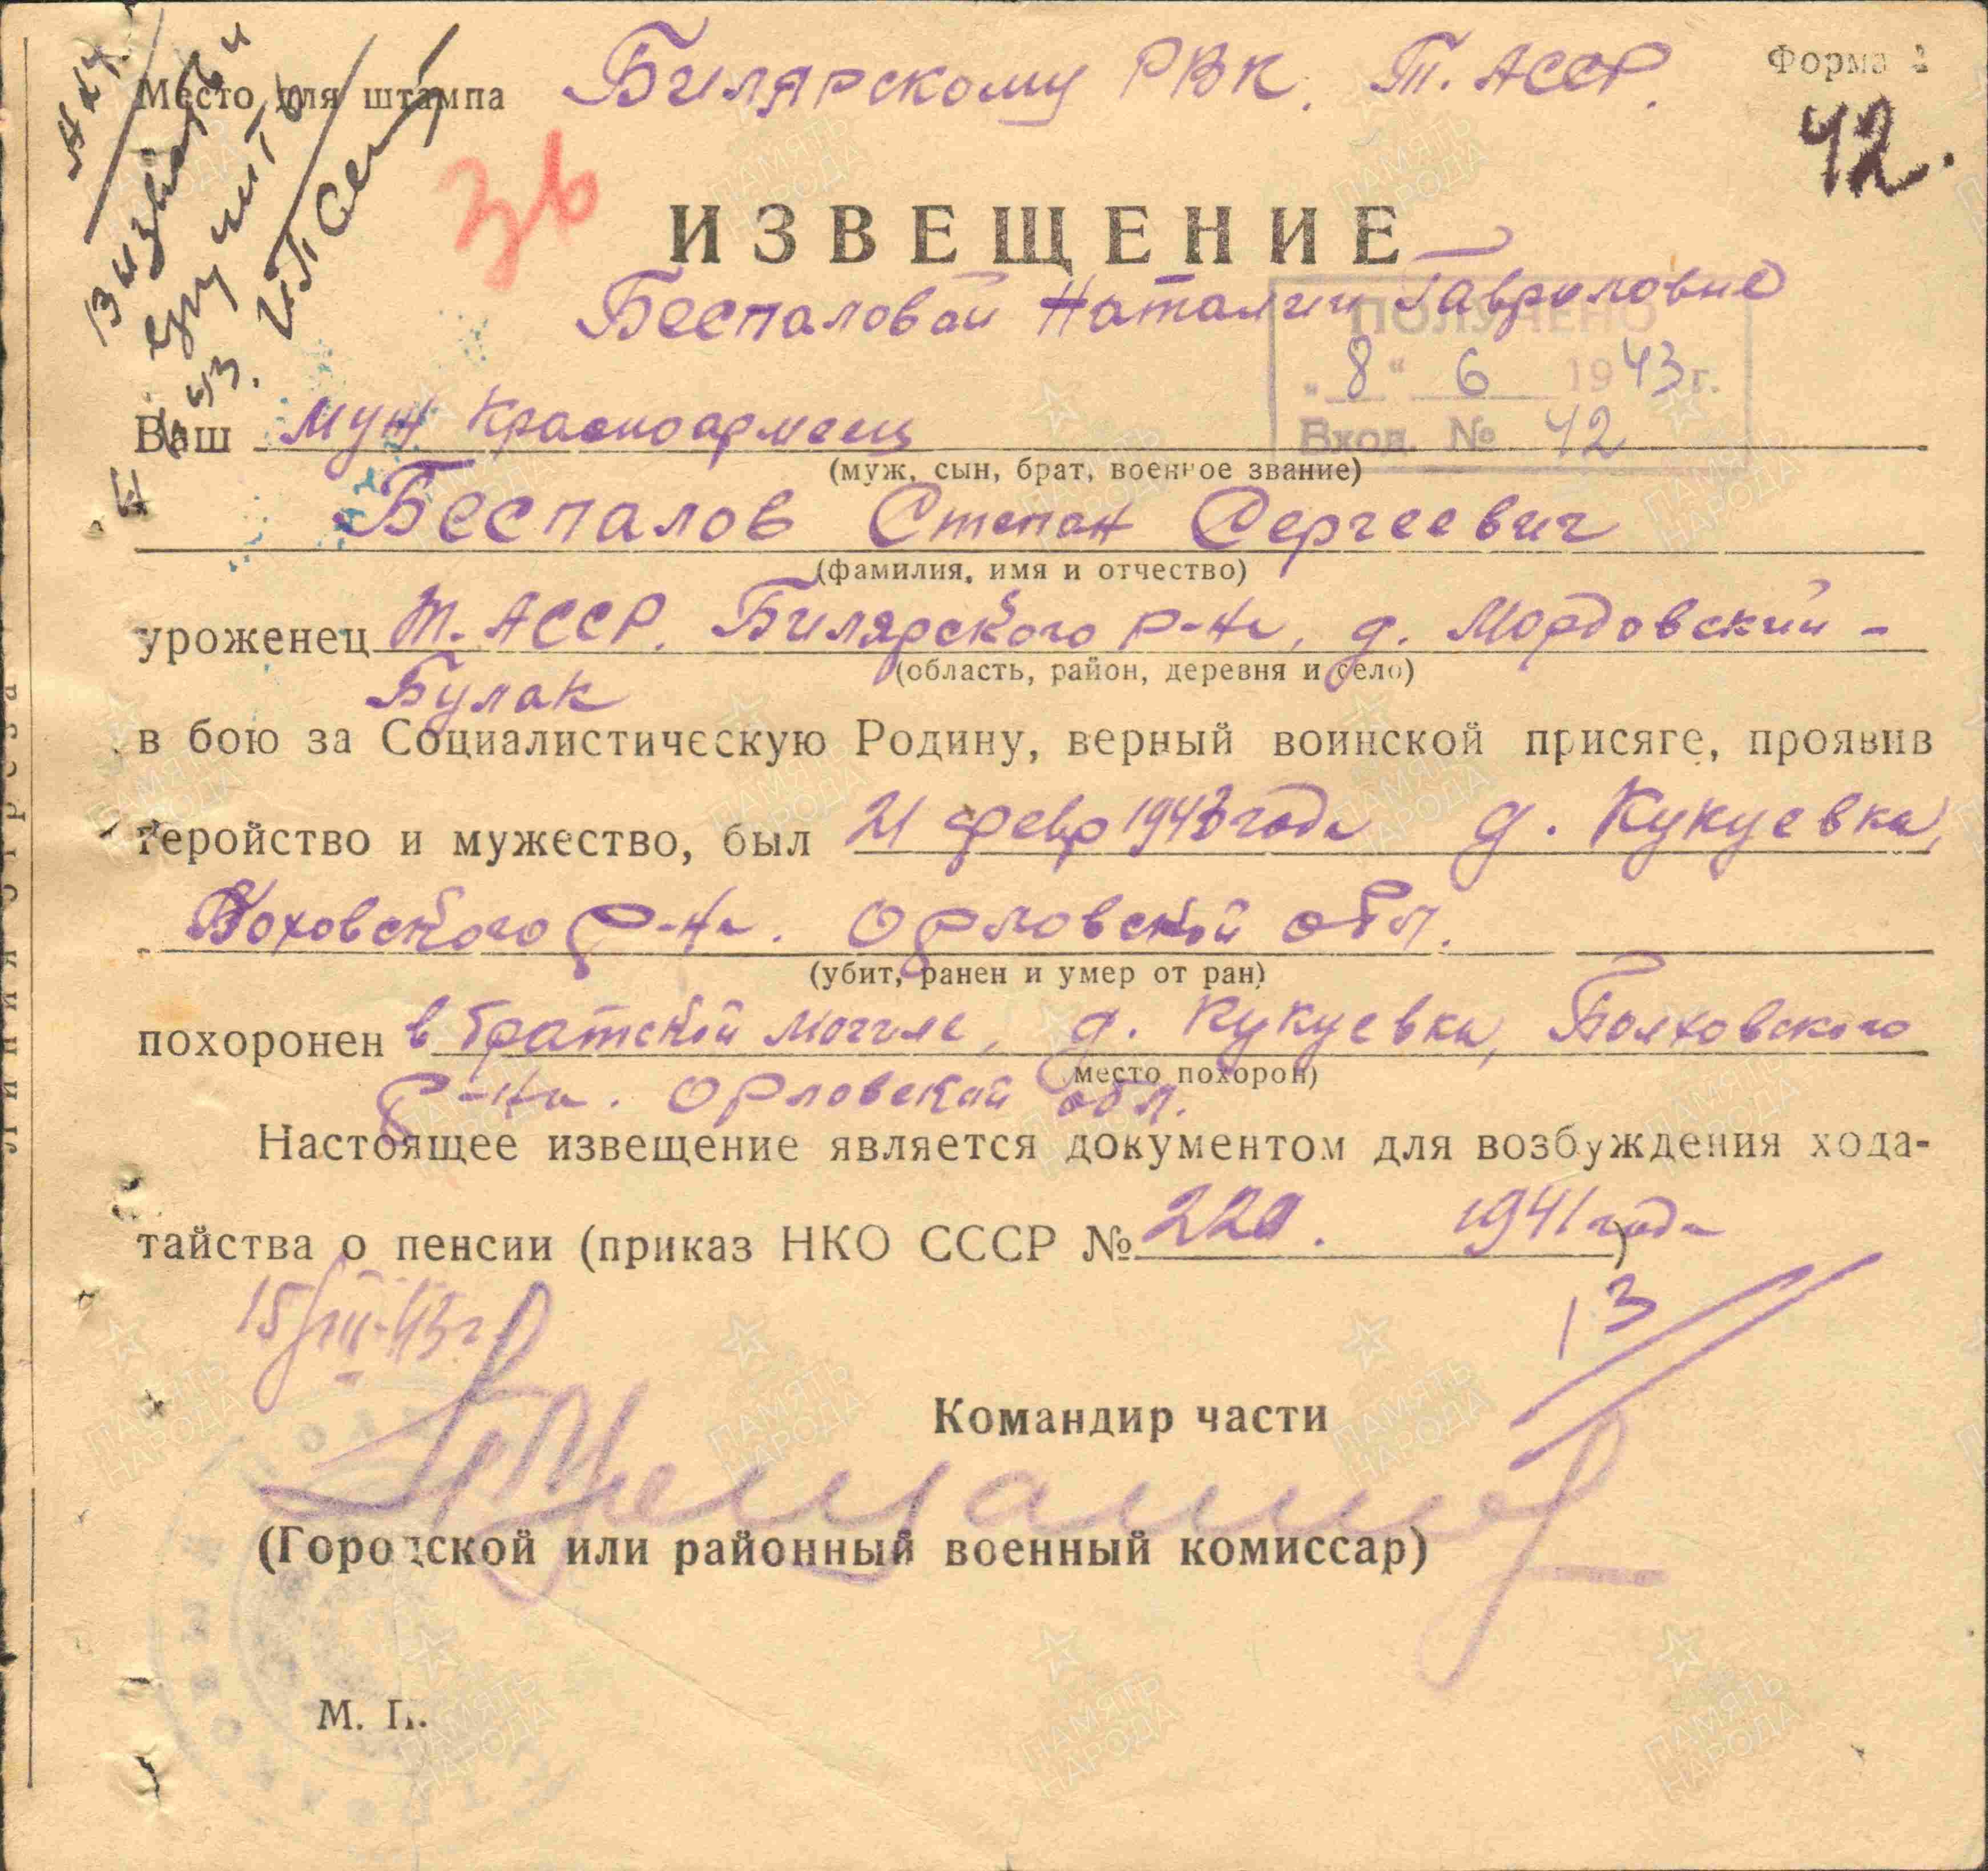 Место для штампа Билярскому РВК. Т. АССР. Форма
42.
36
ИЗВЕЩЕНИЕ
Беспаловой Наталии Гавриловне
ПОЛУЧЕНО
"8" 6 1943 г.
Вход. № 42
Ваш муж красноармеец
(муж, сын, брат, военное звание)
Беспалов Степан Сергеевич
(фамилия, имя и отчество)
уроженец Т. АССР. Билярского р-на, д. Мордовский -
(область, район, деревня и село)
Булак
в бою за Социалистическую Родину, верный воинской присяге, проявив
геройство и мужество, был 21 февр 1943 года д. Кукуевка,
р-на. Орловской обл.
(убит, ранен и умер от ран)
похоронен в братской могиле, д. Кукуевка, Болховского
место похорон)
р-на. Орловской обл.
Настоящее извещение является документом для возбуждения хода-
тайства о пенсии (приказ НКО СССР № 220. 1941 года)
15/III-43 г
13
Командир части
(Городской или районный военный комиссар)
М. П.
линия отреза
ПАМЯТЬ НАРОДА